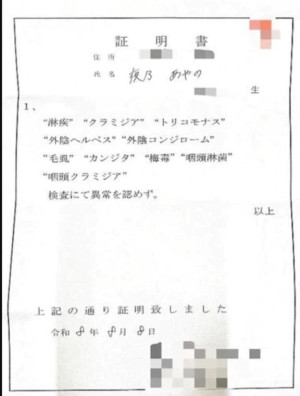 証明書
住所
氏名 筱乃 あやの
生
1、
“淋疾”“クラミジア”“トリコモナス”
“外陰ヘルペス”“外陰コンジローム”
“毛虱”“カンジタ”“梅毒”“咽頭淋菌”
“咽頭クラミジア”
検査にて異常を認めず。
以上
上記の通り証明致しました
令和 8年 8月 8日